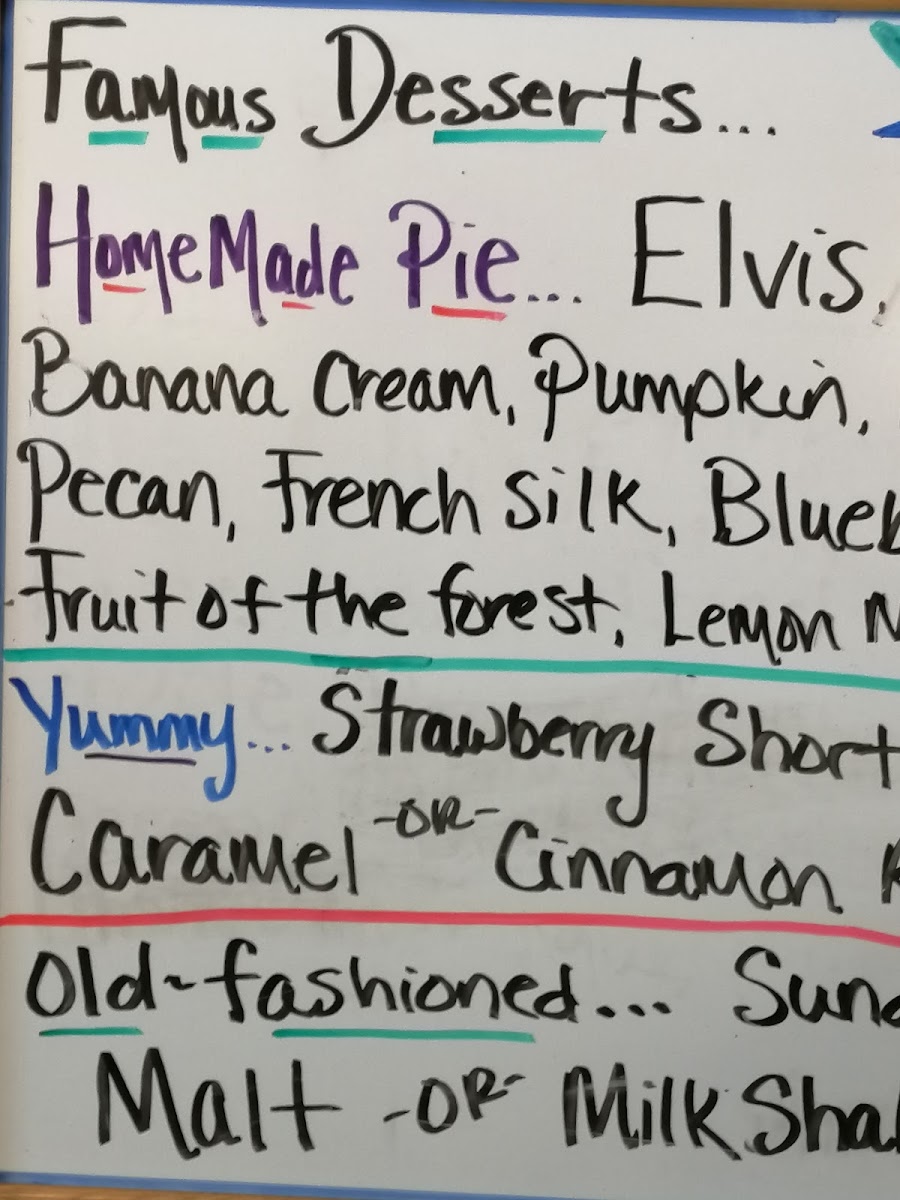 Famous Desserts...
HomeMade Pie... Elvis,
Banana Cream, Pumpkin,
Pecan, French Silk, Blueb
Fruit of the forest, Lemon M
Yummy... Strawberry Short
Caramel -OR- Cinnamon R
Old-fashioned... Sund
Malt -OR- MilkShak